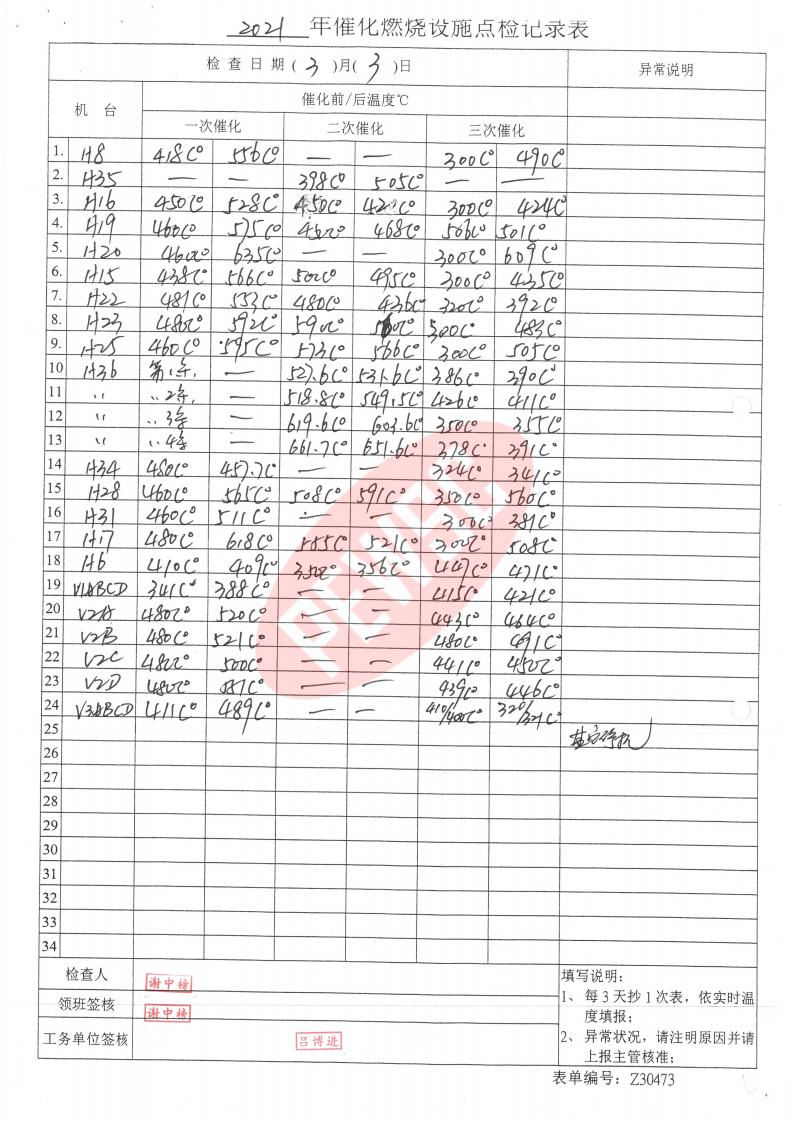 2021 年催化燃烧设施点检记录表
检查日期(3)月(3)日 异常说明
机 台 催化前/后温度℃
一次催化 二次催化 三次催化
1. H8 418C° 556C° — — 300C° 490C°
2. H35 — — 398C° 505C° — —
3. H16 450C° 528C° 450C° 300C° 424C°
4. H19 460C° 575C° 468C° 506C° 501C°
5. H20 460C° 635C° — — 300C° 609C°
6. H15 438C° 566C° 502C° 495C° 300C° 435C°
7. H22 481C° 553C° 480C° 436C° 320C° 392C°
8. H23 480C° 592C° 590C° 300C° 483C°
9. H25 460C° 595C° 573C° 566C° 300C° 505C°
10 H36 第1条 — 527.6C° 531.6C° 386C° 390C°
11 〃 〃2条 — 518.8C° 549.5C° 426C° 411C°
12 〃 〃3条 — 619.6C° 603.6C° 350C° 355C°
13 〃 〃4条 — 661.7C° 651.6C° 378C° 391C°
14 H34 480C° 457.7C° — — 324C° 341C°
15 H28 460C° 565C° 508C° 591C° 350C° 560C°
16 H31 460C° 511C° — — 300C° 381C°
17 H17 480C° 618C° 505C° 521C° 300C° 508C°
18 H6 410C° 409C° 350C° 356C° 449C° 471C°
19 V1ABCD 341C° 388C° — — 415C° 421C°
20 V2A 480C° 520C° — — 443C° 464C°
21 V2B 480C° 521C° — — 480C° 491C°
22 V2C 480C° 500C° — — 441C° 450C°
23 V2D 480C° — — 439C° 446C°
24 V3ABCD 411C° 489C° — — 410/400C° 320/321C°
25
26
27
28
29
30
31
32
33
34
PEWSC
检查人 谢中榜
领班签核 谢中榜
工务单位签核 吕博进
填写说明:
1、每3天抄1次表，依实时温
度填报;
2、异常状况，请注明原因并请
上报主管核准;
表单编号：Z30473